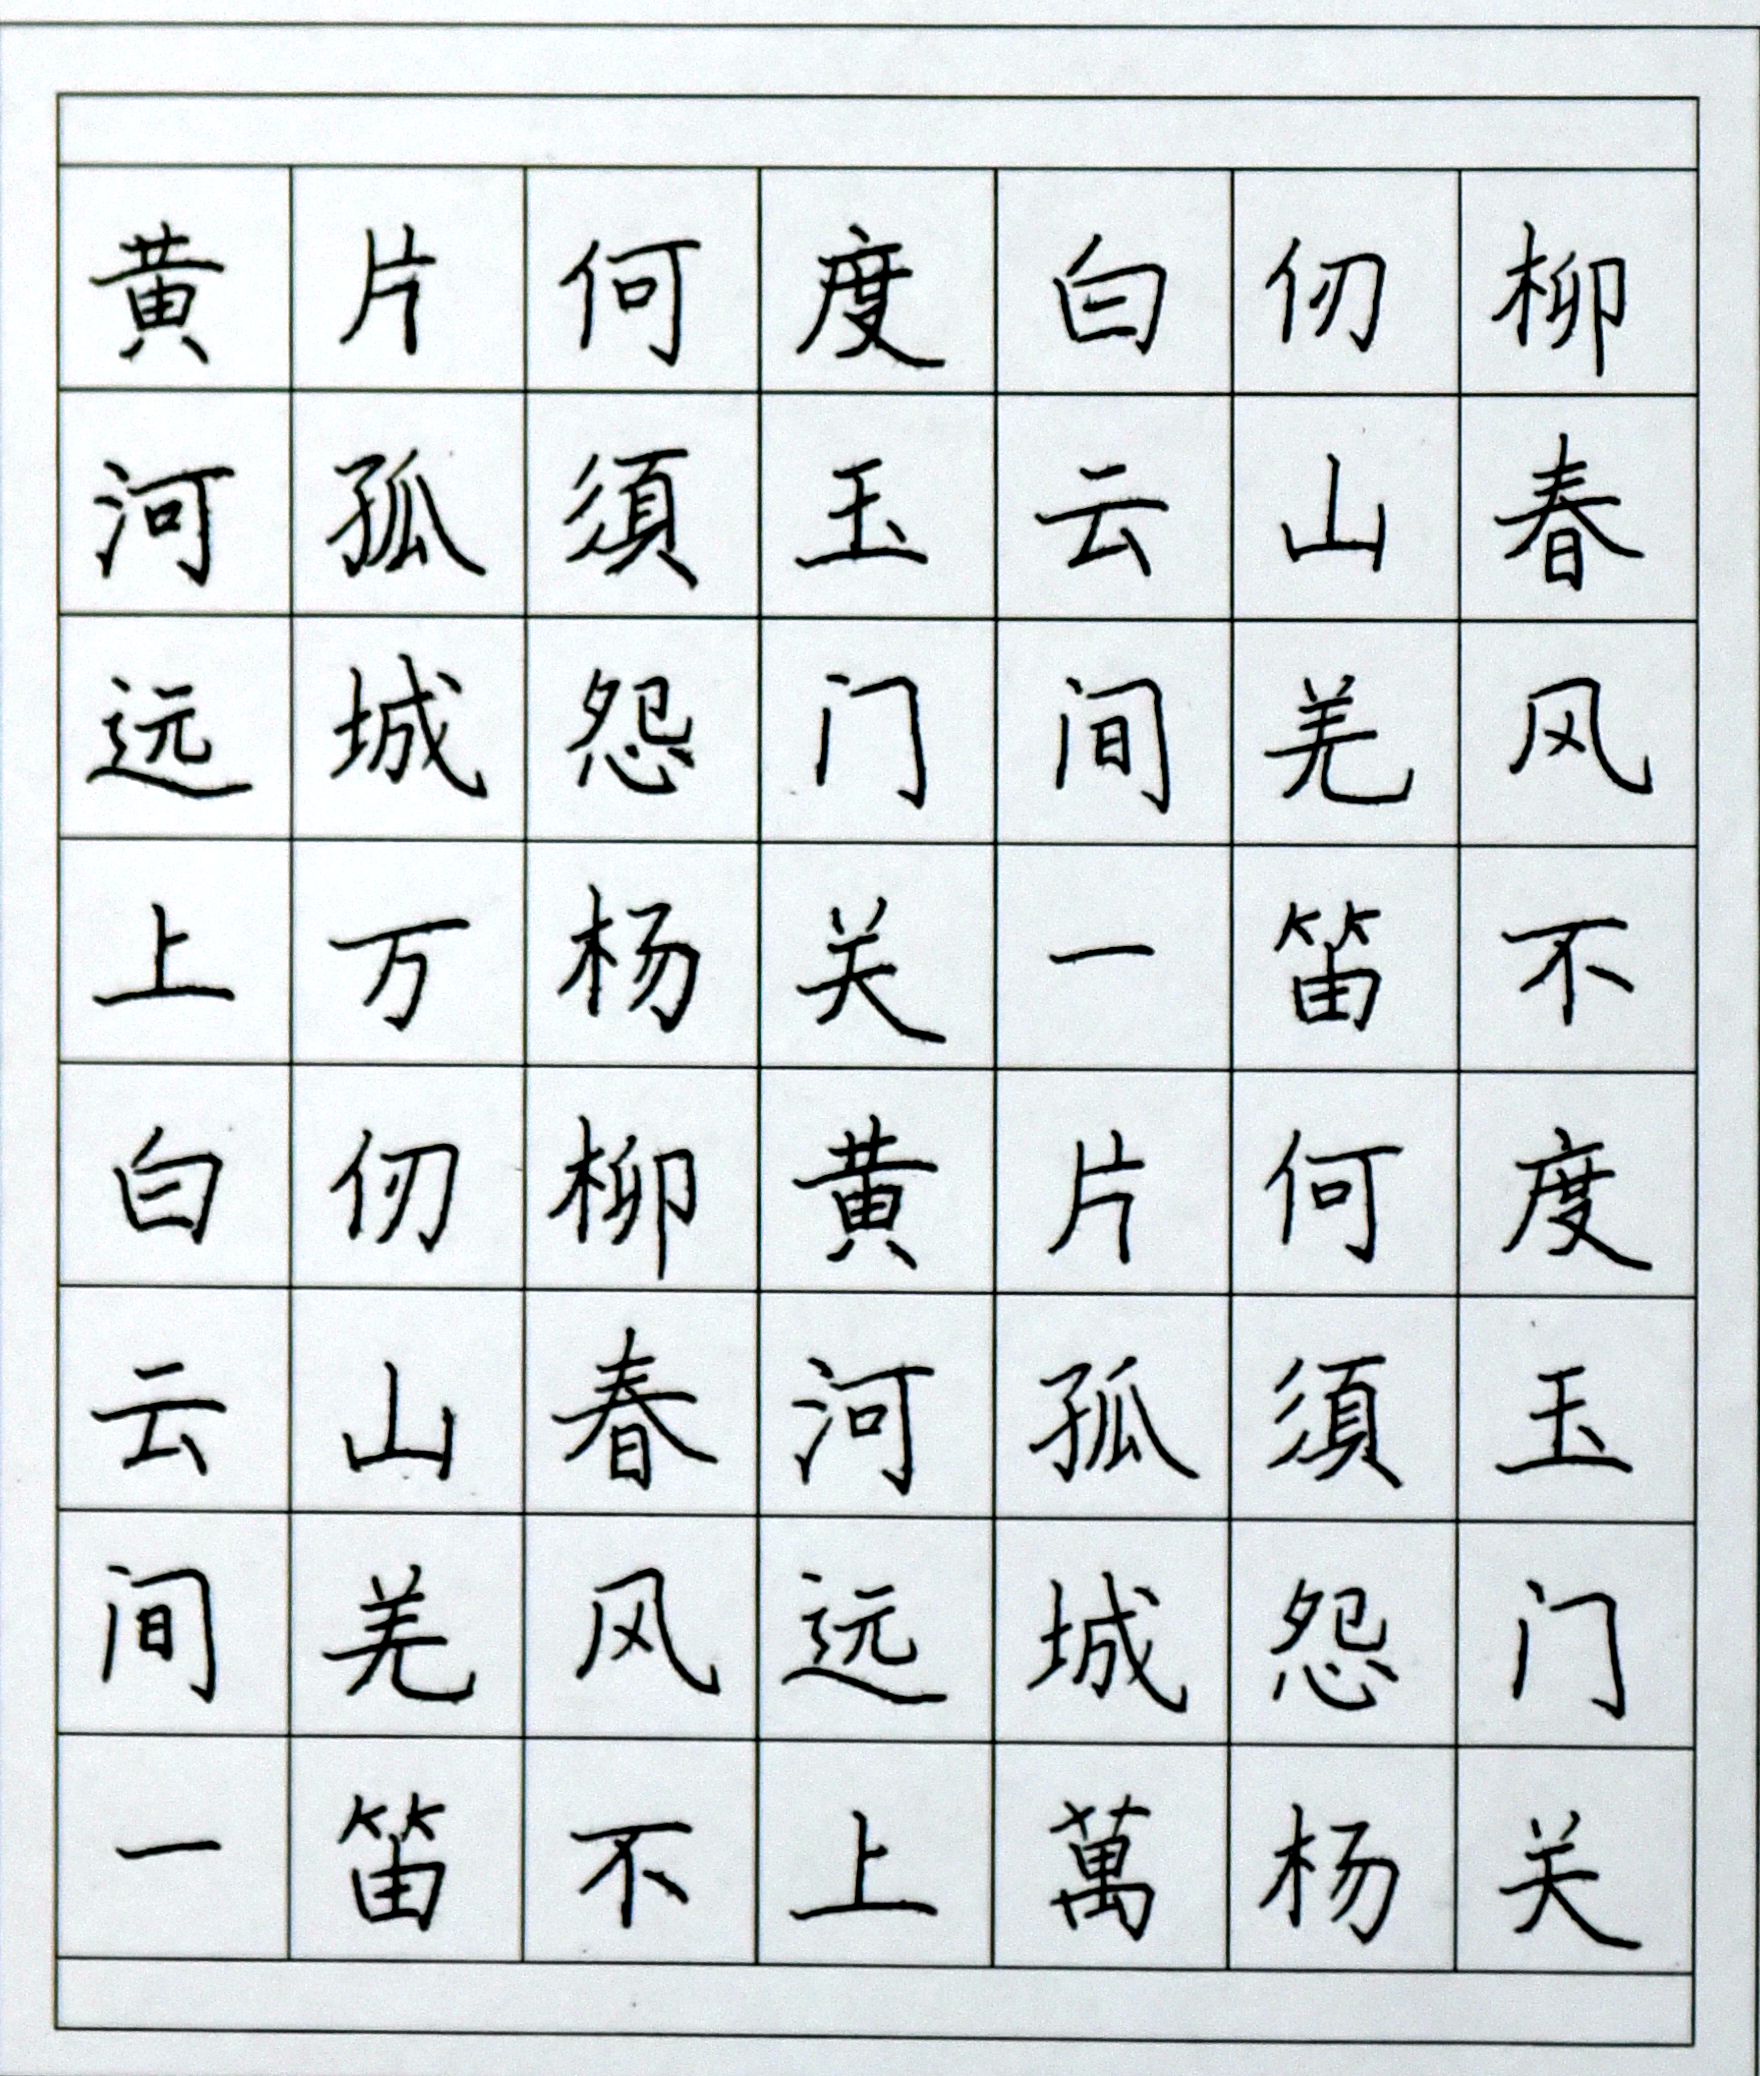 黄河远上白云间一
片孤城万仞山羌笛
何須怨杨柳春风不
度玉门关黄河远上
白云间一片孤城萬
仞山羌笛何須怨杨
柳春风不度玉门关